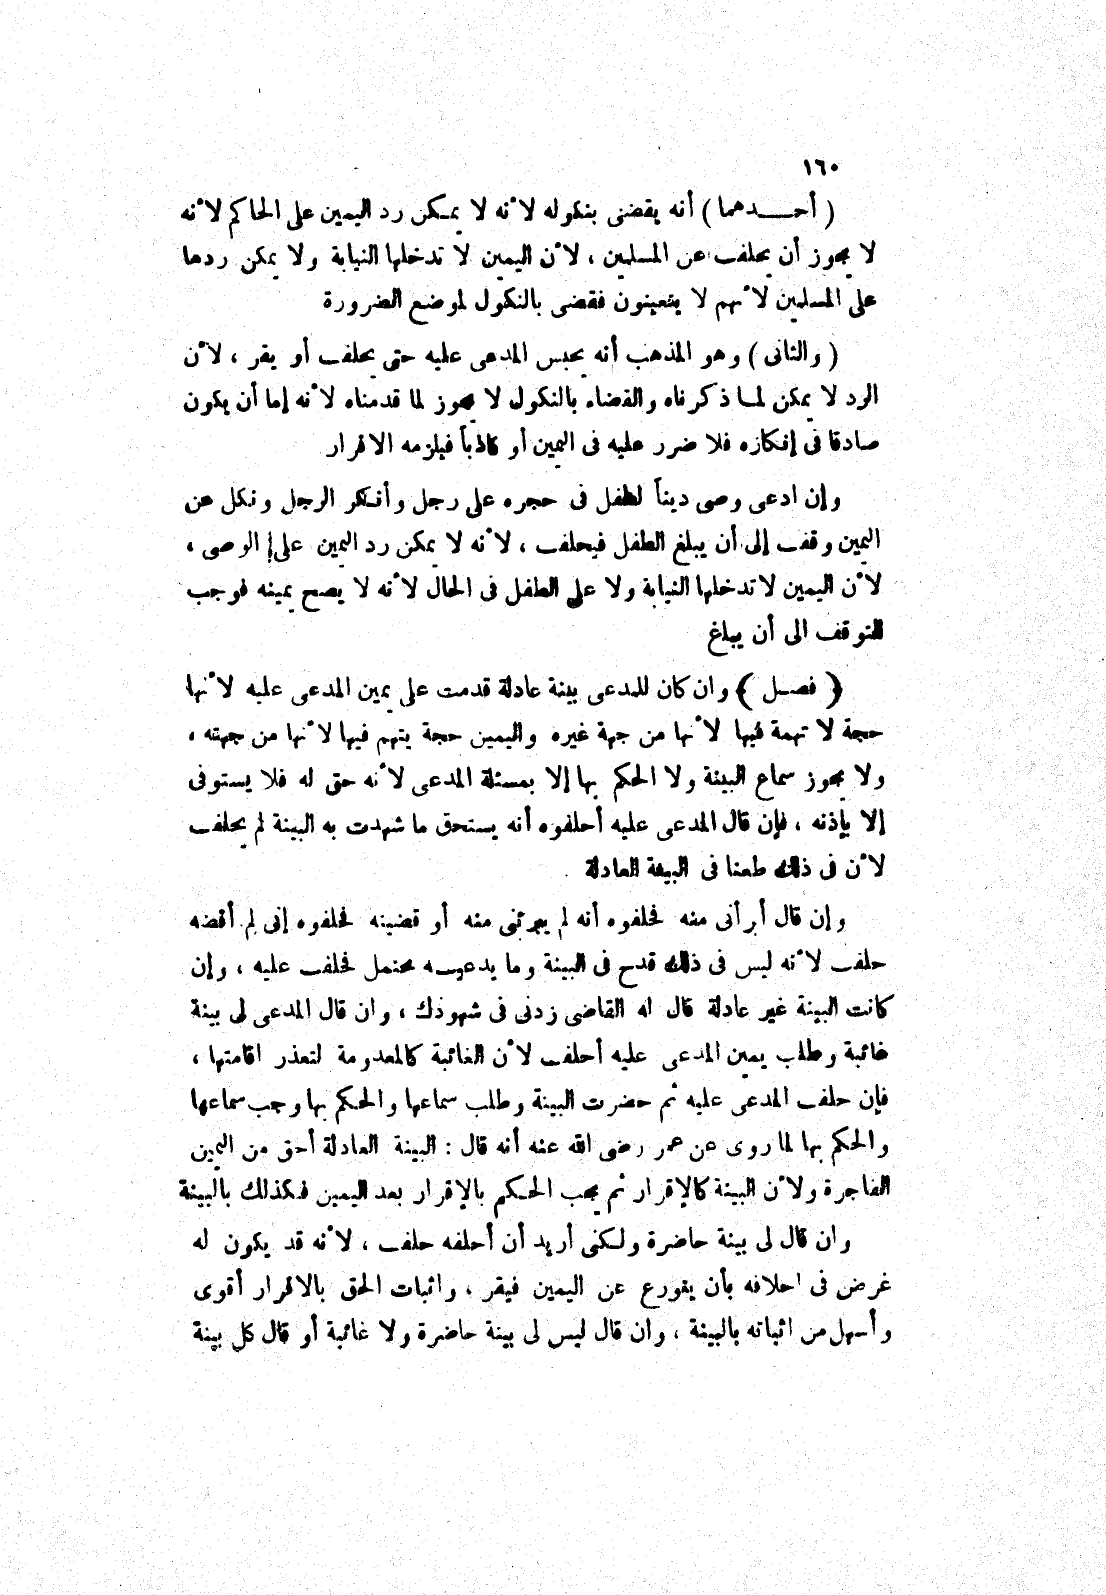 ١٦٠
( أحـــدهما ) أنه يقضى بنكوله لأنه لا يمكن رد اليمين على الحاكم لأنه
لا يجوز أن يحلف عن المسلمين ، لأن اليمين لا تدخلها النيابة ولا يمكن ردها
على المسلمين لأنهم لا يتعينون فقضى بالنكول لموضع الضرورة
( والثانى ) وهو المذهب أنه يحبس المدعى عليه حتى يحلف أو يقر ، لأن
الرد لا يمكن لمـا ذكرناه والقضاء بالنكول لا يجوز لما قدمناه لأنه إما أن يكون
صادقا فى إنكاره فلا ضرر عليه فى اليمين أو كاذباً فيلزمه الاقرار
وإن ادعى وصى ديناً لطفل فى حجره على رجل وأنكر الرجل ونكل عن
اليمين وقف إلى أن يبلغ الطفل فيحلف ، لأنه لا يمكن رد اليمين على الوصى ،
لأن اليمين لا تدخلها النيابة ولا على الطفل فى الحال لأنه لا يصح يمينه فوجب
التوقف الى أن يبلغ
( فصـل ) وان كان للمدعى بينة عادلة قدمت على يمين المدعى عليه لأنها
حجة لا تهمة فيها لأنها من جهة غيره واليمين حجة يتهم فيها لأنها من جهته ،
ولا يجوز سماع البينة ولا الحكم بها إلا بمسئلة المدعى لأنه حق له فلا يستوفى
إلا بإذنه ، فإن قال المدعى عليه أحلفوه أنه يستحق ما شهدت به البينة لم يحلف
لأن فى ذلك طعنا فى البينة العادلة
وإن قال أبرأنى منه فحلفوه أنه لم يبرئنى منه أو قضيته فحلفوه إنى لم أقضه
حلف لأنه ليس فى ذلك قدح فى البينة وما يدعيـه محتمل فحلف عليه ، وإن
كانت البينة غير عادلة قال له القاضى زدنى فى شهودك ، وان قال المدعى لى بينة
غائبة وطلب يمين المدعى عليه أحلف لأن الغائبة كالمعدومة لتعذر اقامتها ،
فإن حلف المدعى عليه ثم حضرت البينة وطلب سماعها والحكم بها وجب سماعها
والحكم بها لما روى عن عمر رضى الله عنه أنه قال : البينة العادلة أحق من اليمين
الفاجرة ولأن البينة كالإقرار ثم يجب الحكم بالإقرار بعد اليمين فكذلك بالبينة
وان قال لى بينة حاضرة ولكنى أريد أن أحلفه حلف ، لأنه قد يكون له
غرض فى احلافه بأن يتورع عن اليمين فيقر ، واثبات الحق بالاقرار أقوى
وأسهل من اثباته بالبينة ، وان قال ليس لى بينة حاضرة ولا غائبة أو قال كل بينة